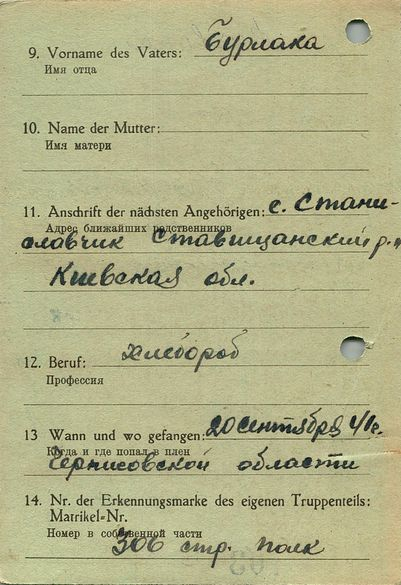 9. Vorname des Vaters: Бурлака
Имя отца
10. Name der Mutter:
Имя матери
11. Anschrift der nächsten Angehörigen: с. Стани-
Адрес ближайших родственников
славчик Ставищанский р.
Киевская обл.
12. Beruf: хлебороб
Профессия
13 Wann und wo gefangen: 20 сентября 41 г.
Когда и где попал в плен
области
14. Nr. der Erkennungsmarke des eigenen Truppenteils:
Matrikel=Nr.
Номер в собственной части
306 стр. полк